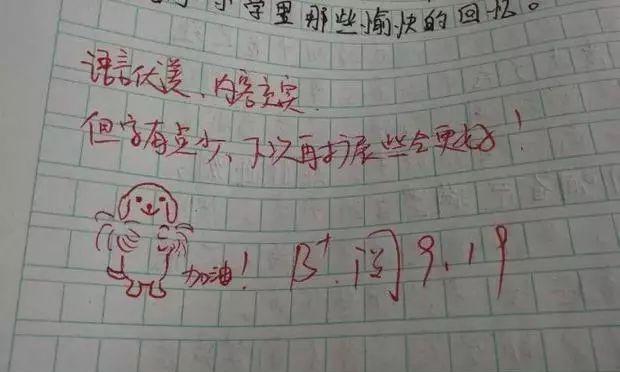 小学里那些愉快的回忆。
语言优美、内容充实
但字有点少、下次再扩展些会更好！
加油！ B⁺ 阅 9.19